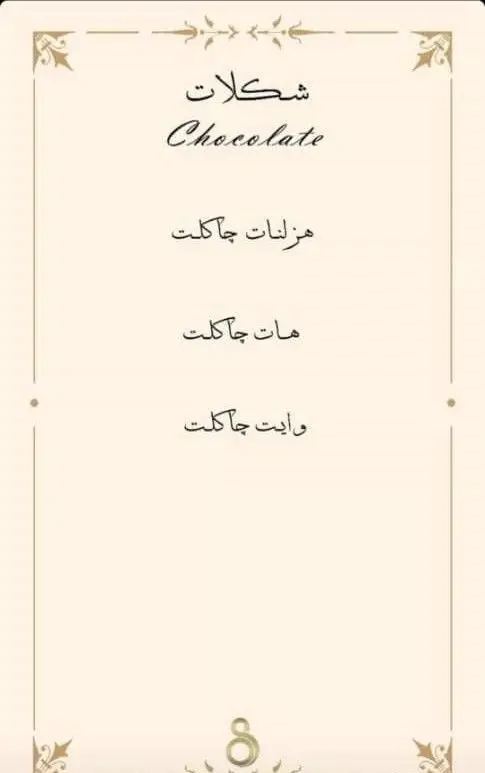 شکلات
Chocolate
هزلنات چاکلت
هات چاکلت
وایت چاکلت
8